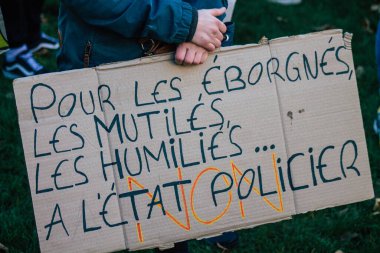 POUR LES ÉBORGNÉS,
LES MUTILÉS,
LES HUMILIÉS...
A L'ÉTAT POLICIER
NON